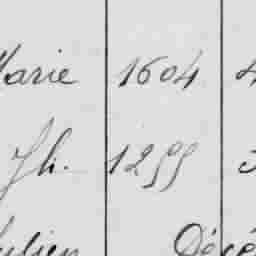 Marie 1604 4
Jh. 1255
Julien Décé